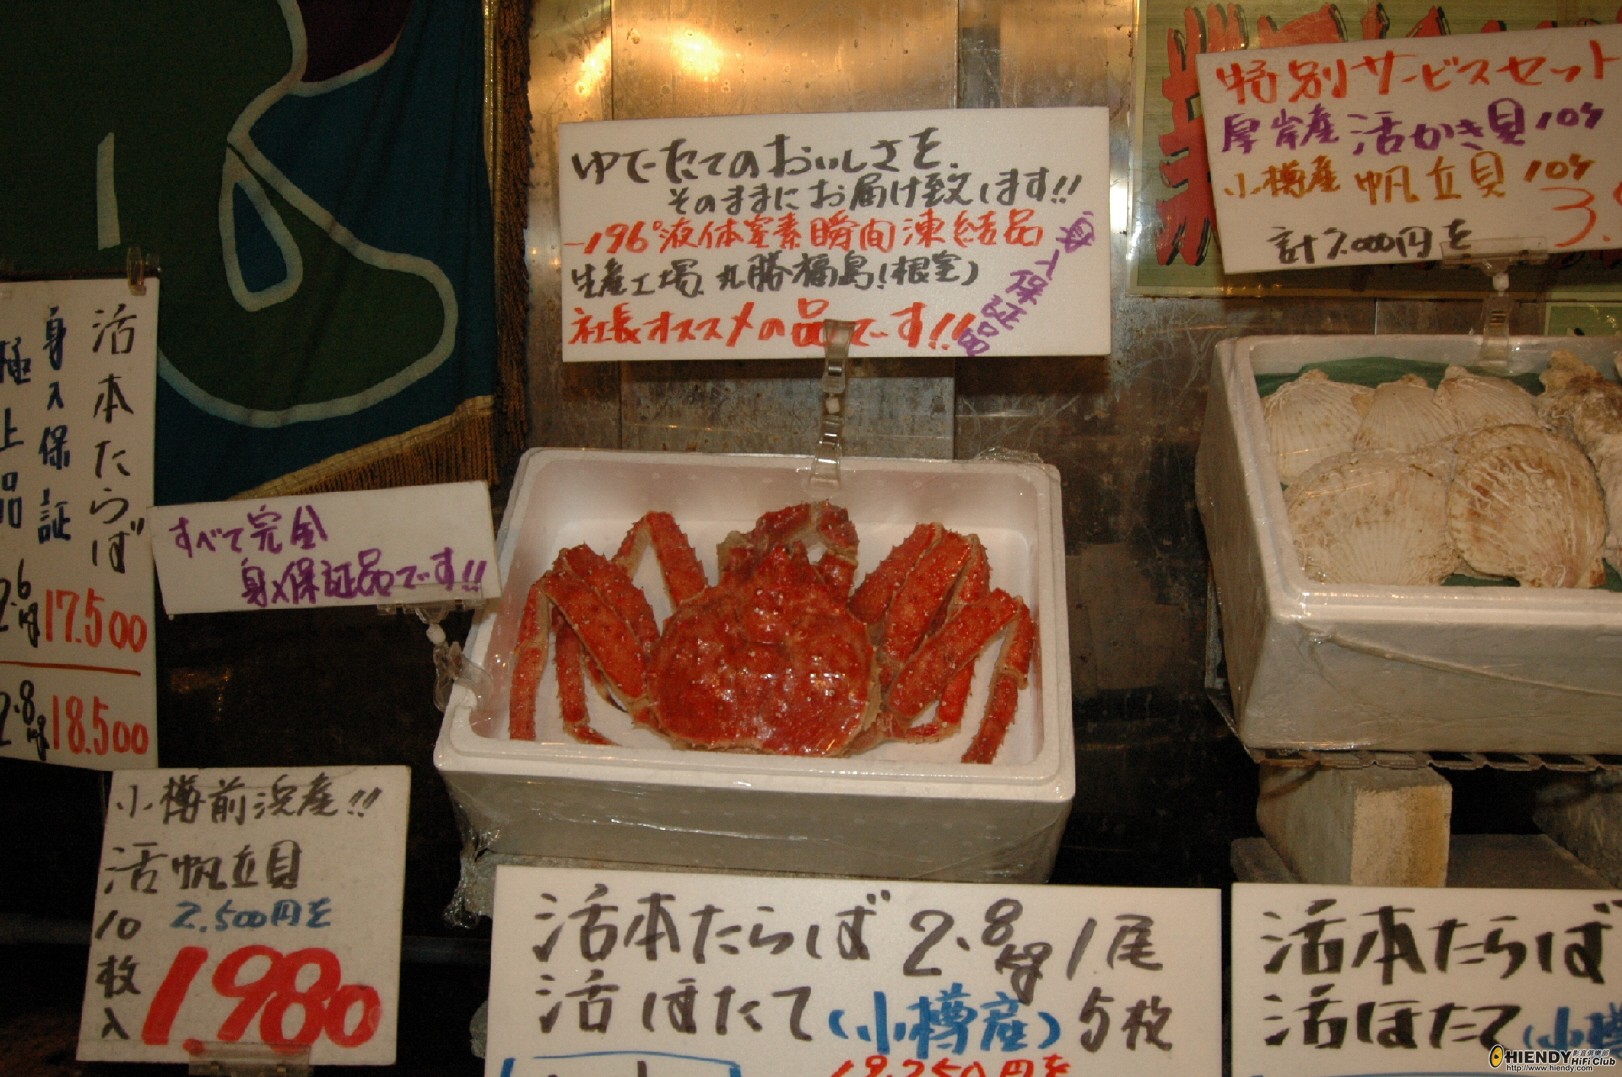 ゆでたてのおいしさを、
そのままにお届け致します!!
-196°液体窒素瞬間凍結品
生産工場、丸勝福島(根室)
社長オススメの品です!!
身入保証品
特別サービスセット
厚岸産 活かき貝 10ケ
小樽産 帆立貝 10ケ
計7.000円を
3.
活本たらば
身入保証
極上品
2.6キロ 17.500
2.8キロ 18.500
すべて完全
身入保証品です!!
小樽前浜産!!
活帆立貝
10枚入
2.500円を
1.980
活本たらば 2.8キロ 1尾
活ほたて(小樽産) 5枚
18.250円を
活本たらば
活ほたて(小樽
HIENDY
HiFi Club
http://www.hiendy.com